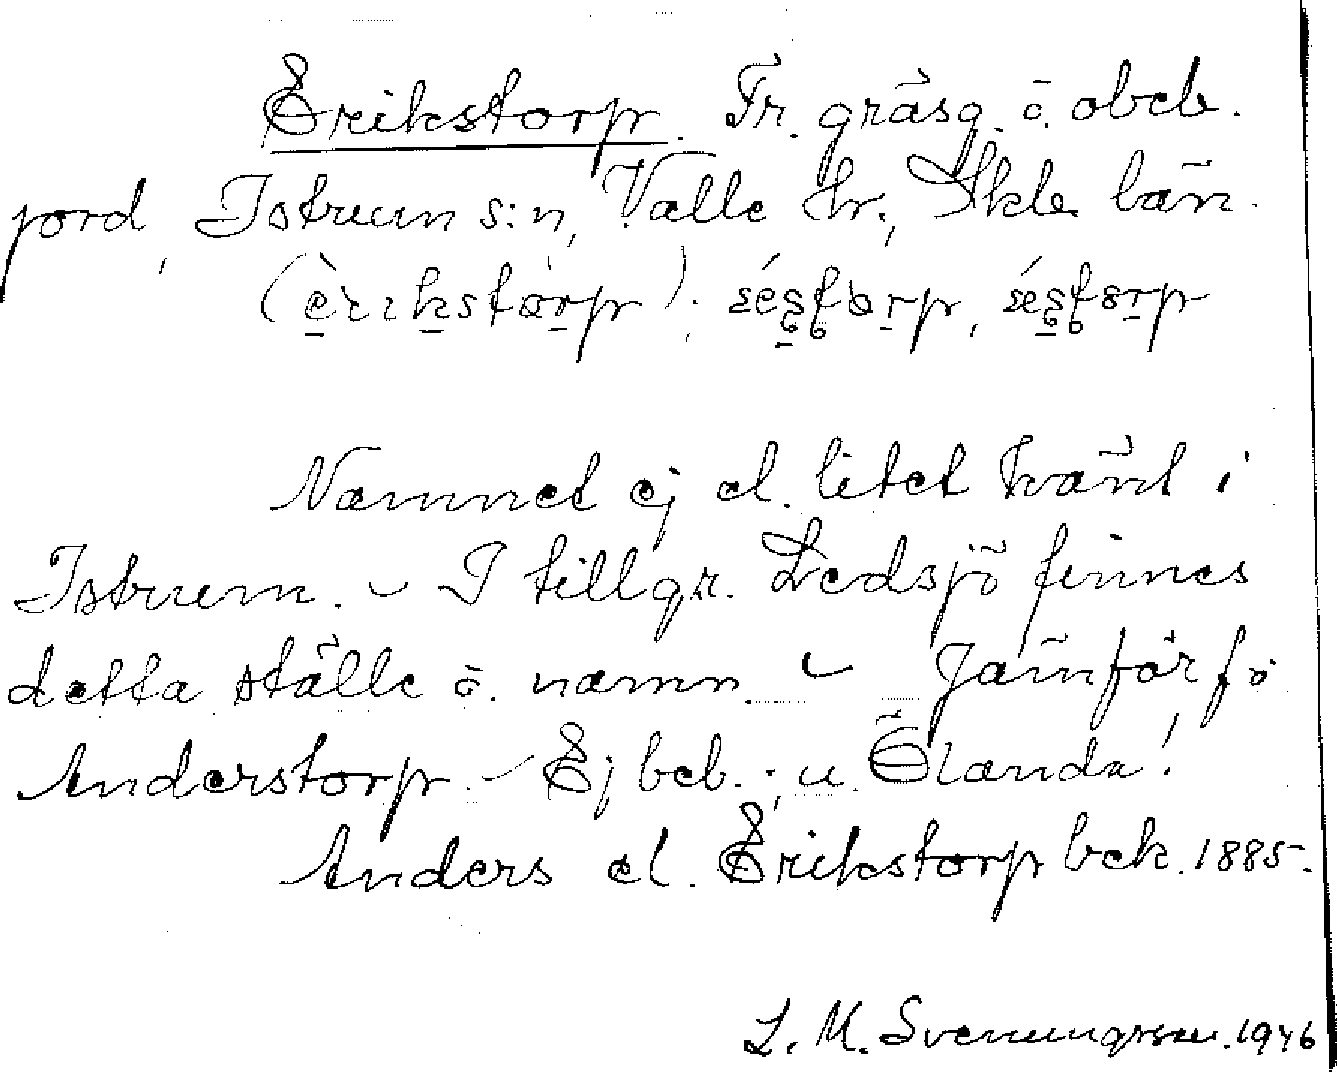 Erikstorp. Fr. gräsg. o. obeb.
jord, Istrum s:n, Valle hr., Skbg. län.
(èrikstòrp);
Namnet ej el. litet känt i
Istrum. – I tillgr. Ledsjö finnes
detta ställe o. namn. – Jämför fö
Anderstorp. – Ej beb.; u. Ölanda!
Anders el. Erikstorp bek. 1885.
L. M. Svenungsson. 1946